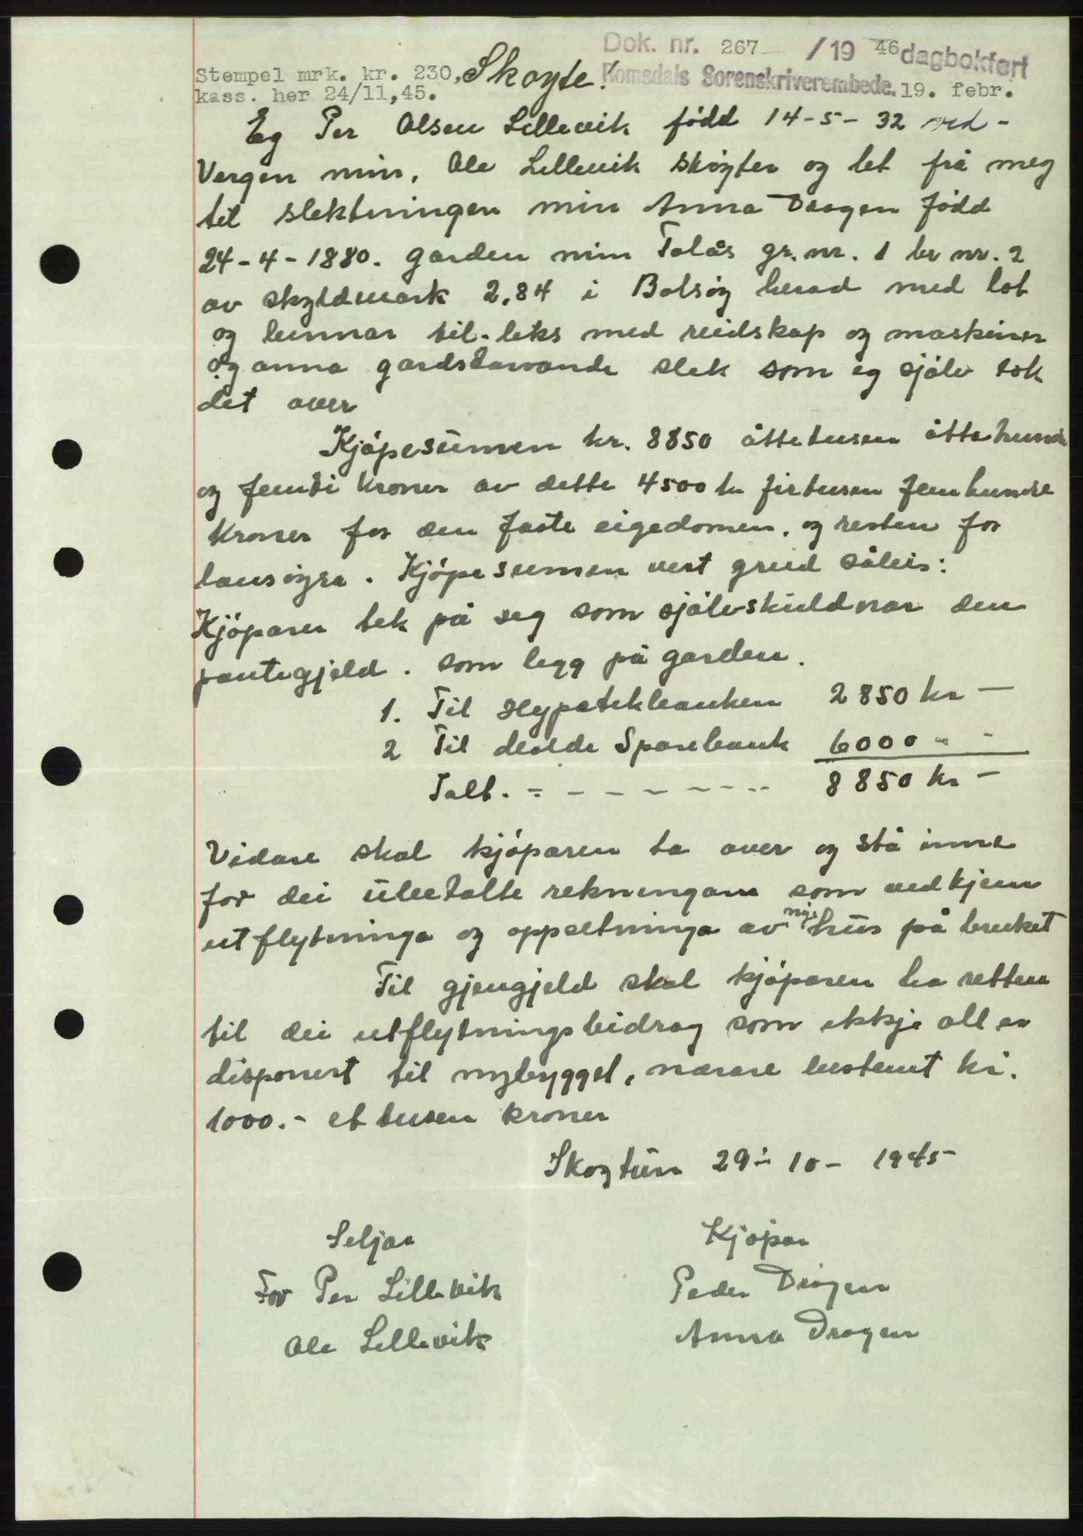 Dok. nr. 267 / 19 46 dagbokført
Stempel mrk. kr. 230, Skøyte! Romsdals Sorenskriverembede. 19. febr.
kass. her 24/11,45.
Eg Per Olsen Lillevik fødd 14-5-32 ved-
Vergen min, Ole Lillevik skøyter og let frå meg
til slektningen min Anna Drogen fødd
24-4-1880. garden min Talås gr. nr. 1 br nr. 2
av skyldmark 2,84 i Bolsøy herad med lot
og lunnar til-leks med reidskap og maskiner
og anna gardstarvande slek som eg sjølv tok
det over
Kjøpesumen kr. 8850 åttetusen åttehundre
og femti kroner av dette 4500 kr firtusen femhundre
kroner for den faste eigedomen, og resten for
lausøyre. Kjøpesumen vert greid såleis:
Kjøparen tek på seg som sjølvskuldnar den
pantegjeld. som legg på garden.
1. Til Hypotekbanken 2850 kr —
2 Til Molde Sparebank 6000 " -
Talt. - - - - - - - 8850 kr —
Vidare skal kjøparen ta over og stå inne
for dei ubetalte rekningane som vedkjem
utflytninga og oppsetninga av nye hus på bruket
Til gjengjeld skal kjøparen ha retten
til dei utflytningsbidrag som ikkje alt er
disponert til nybygget, nærare bestemt kr.
1000.- et tusen kroner
Skogtun 29-10- 1945
Seljar Kjøpar
For Per Lillevik Peder Drogen
Ole Lillevik Anna Drogen